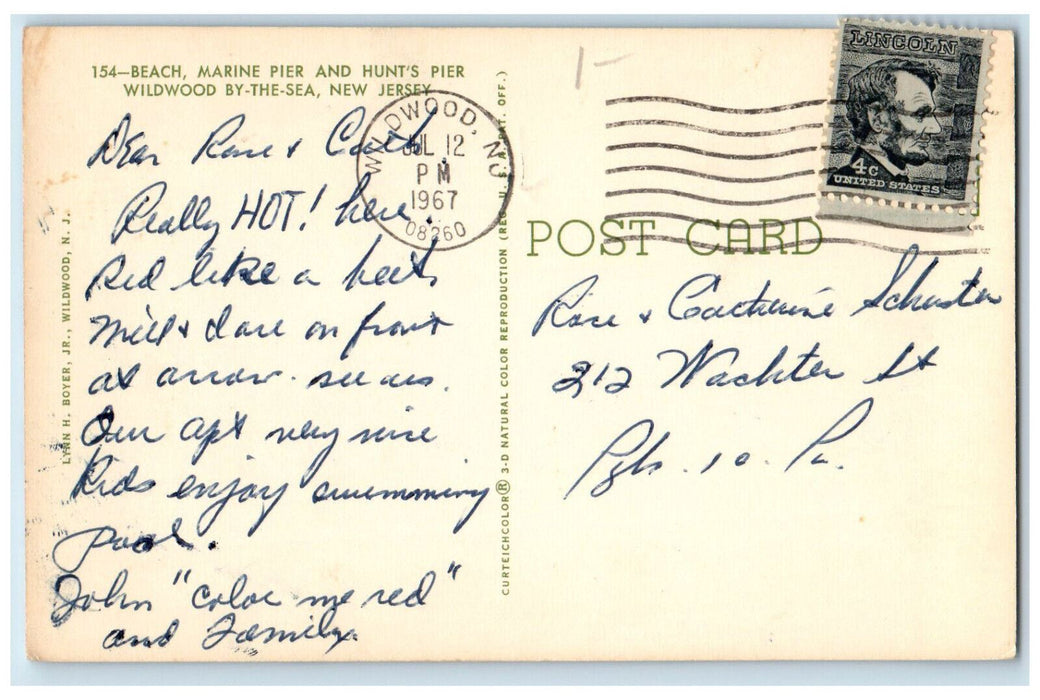 154—BEACH, MARINE PIER AND HUNT'S PIER
WILDWOOD BY-THE-SEA, NEW JERSEY
Dear Rose & Cath
Really HOT! here.
Red like a beet
on front
at arrow. see us.
Our apt very nice
Kids enjoy swimming
pool.
John "color me red"
and Family
LYNN H. BOYER, JR., WILDWOOD, N. J.
CURTEICHCOLOR® 3-D NATURAL COLOR REPRODUCTION (REG. U. S. PAT. OFF.)
WILDWOOD, NJ
JUL 12
PM
1967
08260
1-
LINCOLN
4c
UNITED STATES
POST CARD
Rose & Catherine Schuster
212 Wachter St
Pgh. 10. Pa.